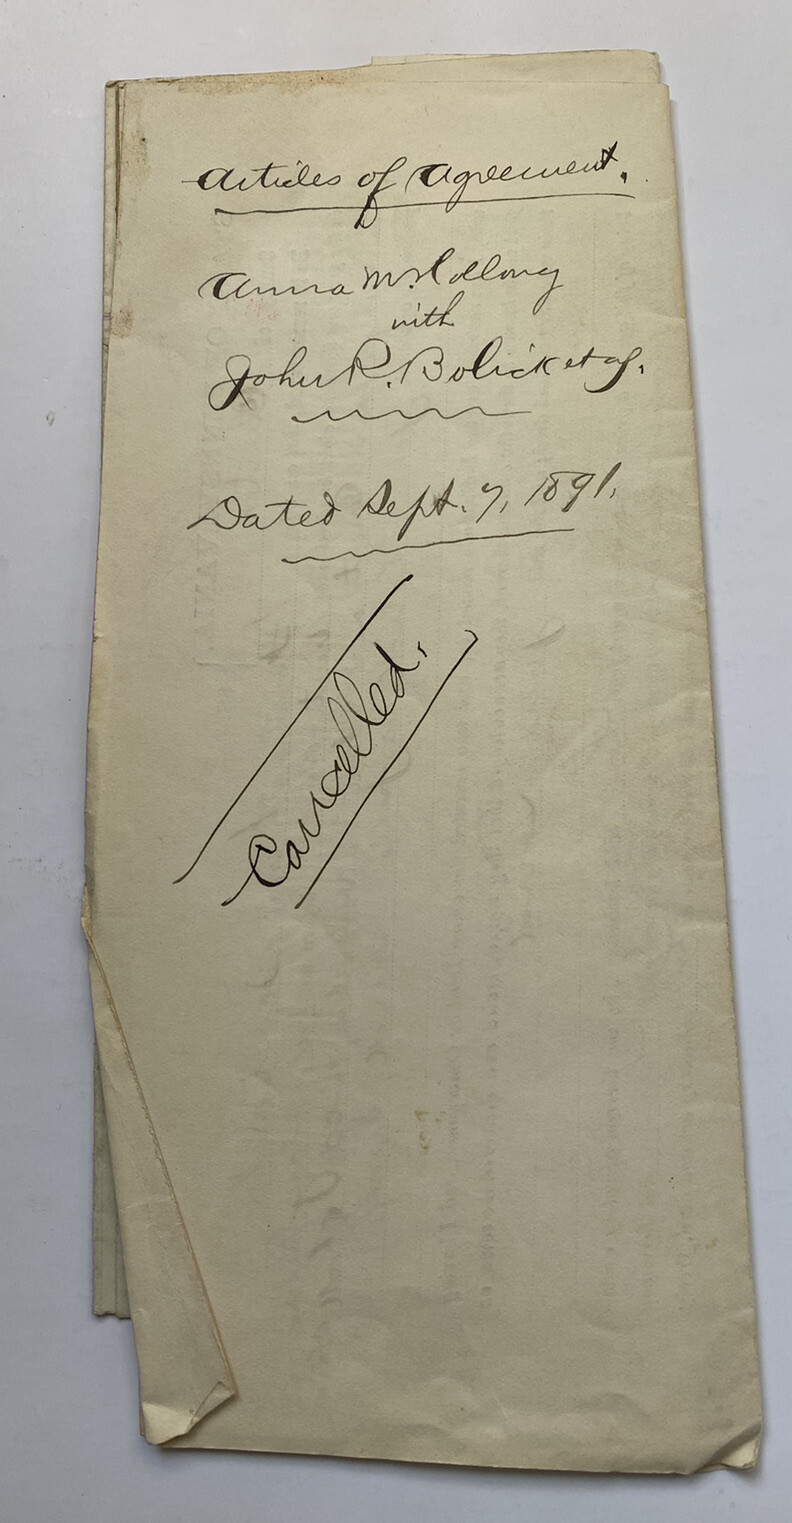 Articles of Agreement.
Anna M.
with
John R. Bolick et al.
Dated Sept. 7, 1891.
Cancelled.